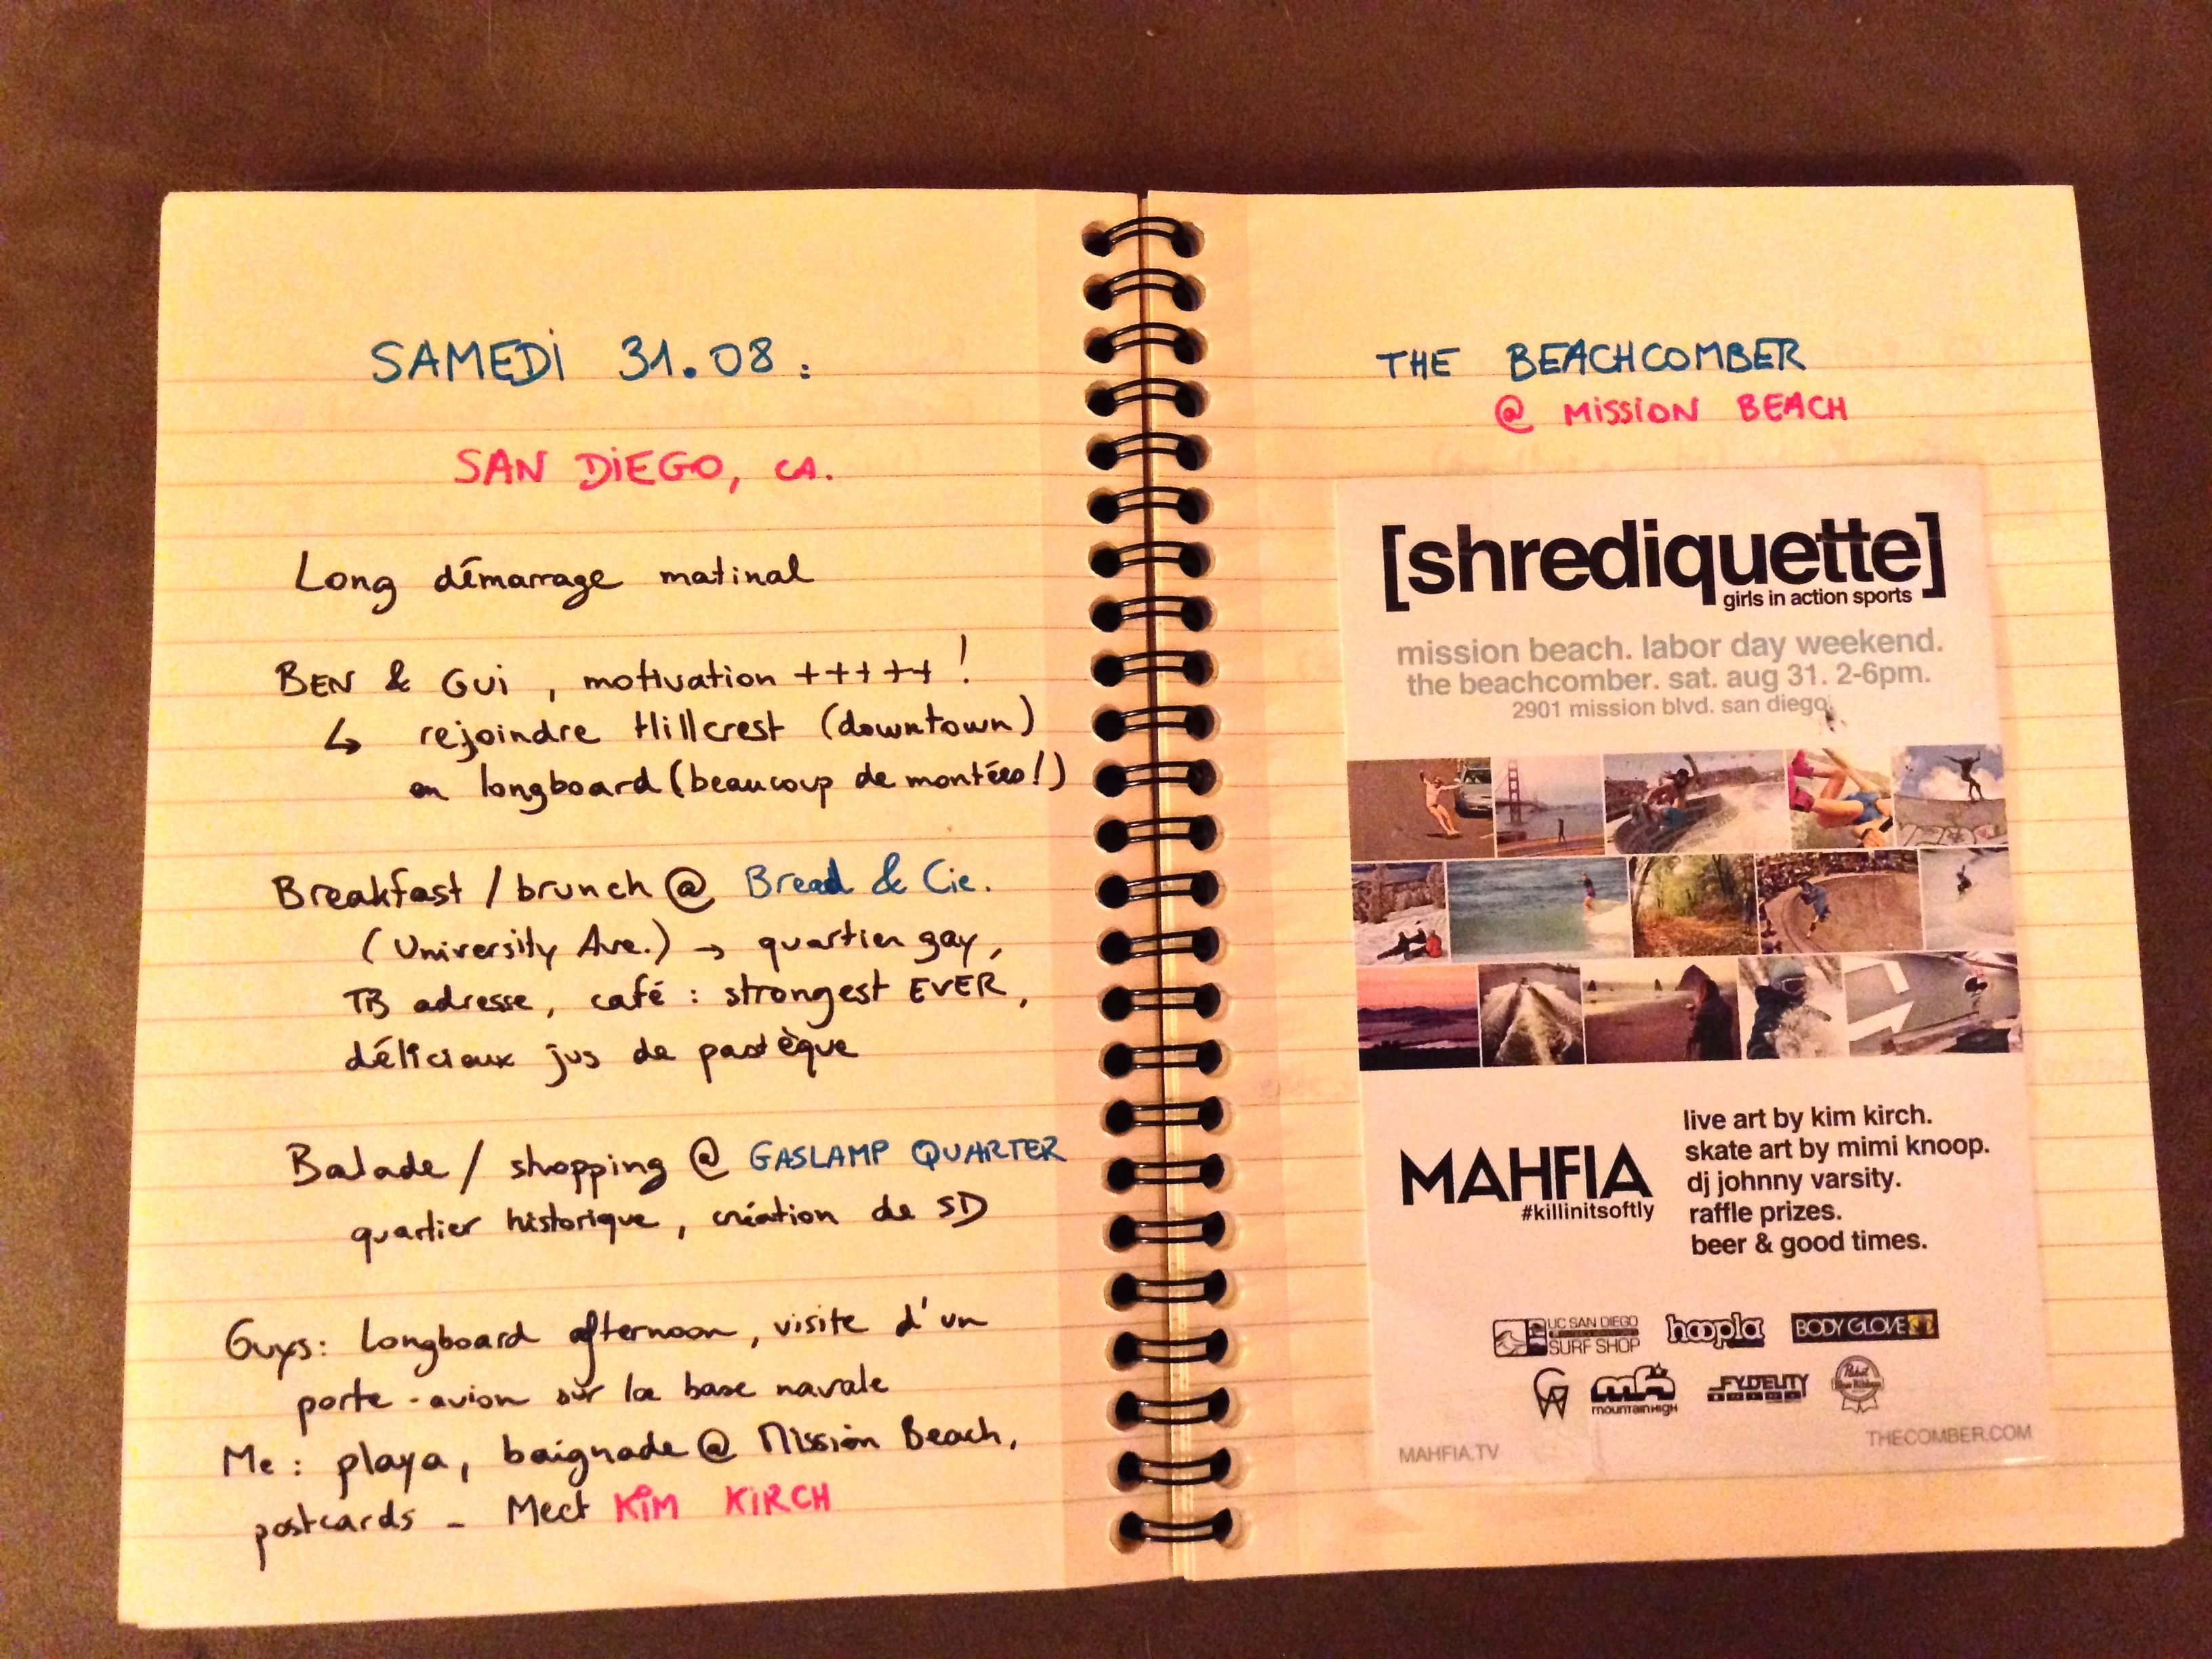 SAMEDI 31.08 :
SAN DIEGO, CA.
Long démarrage matinal
BEN & GUI, motivation +++++ !
↳ rejoindre Hillcrest (downtown)
en longboard (beaucoup de montées!)
Breakfast / brunch @ Bread & Cie.
(University Ave.) → quartier gay,
TB adresse, café : strongest EVER,
délicieux jus de pastèque
Balade / shopping @ GASLAMP QUARTER
quartier historique, création de SD
Guys : Longboard afternoon, visite d'un
porte-avion sur la base navale
Me : playa, baignade @ Mission Beach,
postcards - Meet KIM KIRCH
THE BEACHCOMBER
@ MISSION BEACH
[shrediquette]
girls in action sports
mission beach. labor day weekend.
the beachcomber. sat. aug 31. 2-6pm.
2901 mission blvd. san diego.
live art by kim kirch.
skate art by mimi knoop.
dj johnny varsity.
raffle prizes.
beer & good times.
MAHFIA
#killinitsoftly
UC SAN DIEGO
SURF SHOP
hoopla
BODY GLOVE
mountain high
FYDELITY
Pabst Blue Ribbon
MAHFIA.TV
THECOMBER.COM